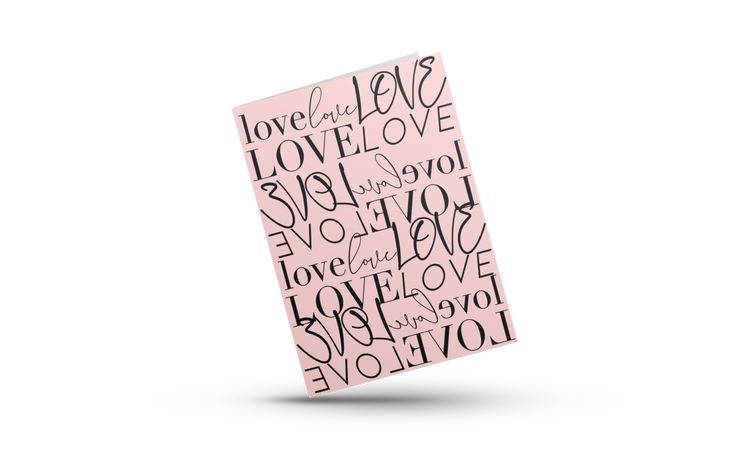 love love LOVE
LOVE LOVE
LOVE love love
LOVE LOVE
love love LOVE
LOVE LOVE
LOVE love love
LOVE LOVE